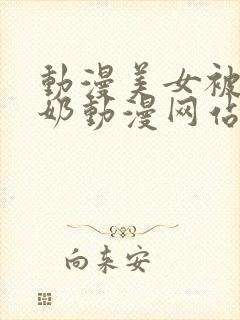 動漫美女被
奶動漫网佔
向未安